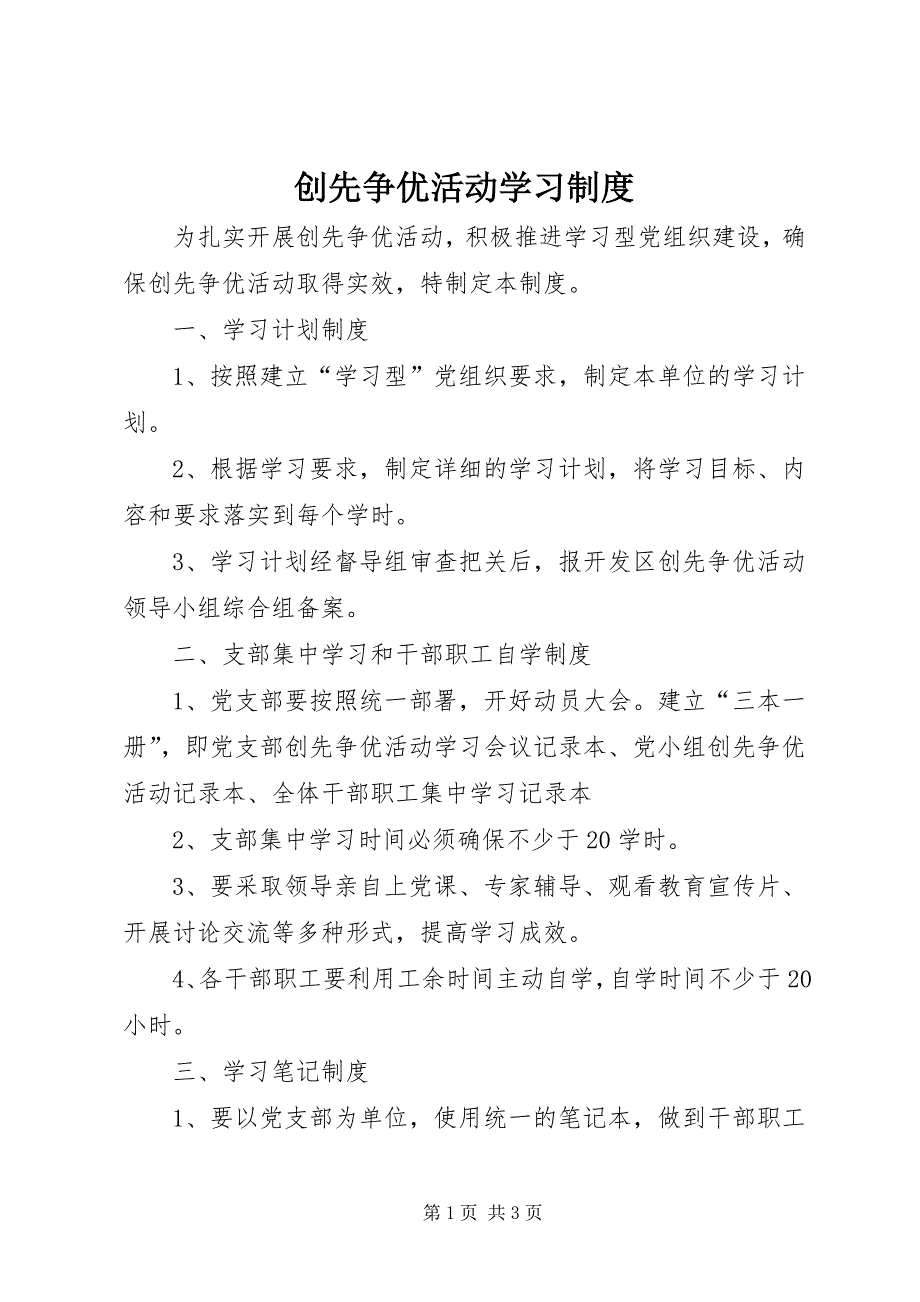 创先争优活动学习制度
为扎实开展创先争优活动，积极推进学习型党组织建设，确
保创先争优活动取得实效，特制定本制度。
一、学习计划制度
1、按照建立“学习型”党组织要求，制定本单位的学习计
划。
2、根据学习要求，制定详细的学习计划，将学习目标、内
容和要求落实到每个学时。
3、学习计划经督导组审查把关后，报开发区创先争优活动
领导小组综合组备案。
二、支部集中学习和干部职工自学制度
1、党支部要按照统一部署，开好动员大会。建立“三本一
册”，即党支部创先争优活动学习会议记录本、党小组创先争优
活动记录本、全体干部职工集中学习记录本
2、支部集中学习时间必须确保不少于 20 学时。
3、要采取领导亲自上党课、专家辅导、观看教育宣传片、
开展讨论交流等多种形式，提高学习成效。
4、各干部职工要利用工余时间主动自学，自学时间不少于 20
小时。
三、学习笔记制度
1、要以党支部为单位，使用统一的笔记本，做到干部职工
第 1 页 共 3 页